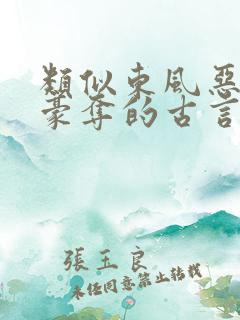 類似東風惡
豪奪的古言
張玉良
未經同意禁止轉載